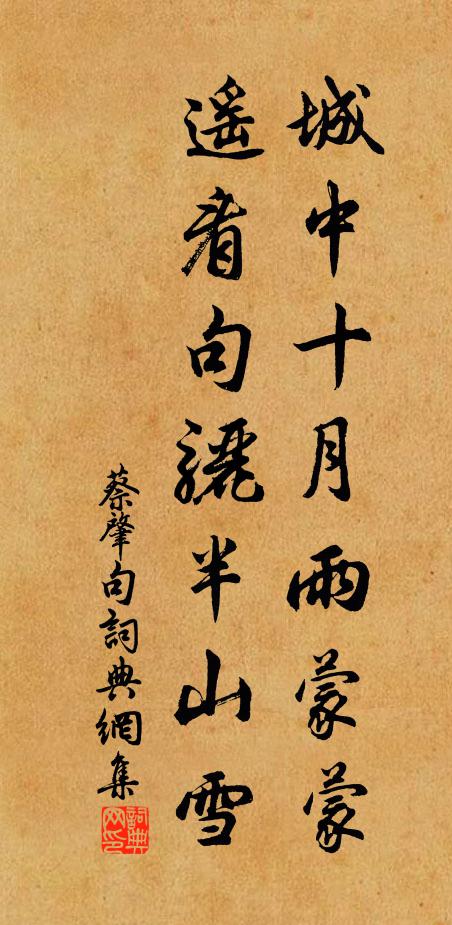 城中十月雨蒙蒙
遥看句驪半山雪
蔡肇句詞典網集
詞典网印